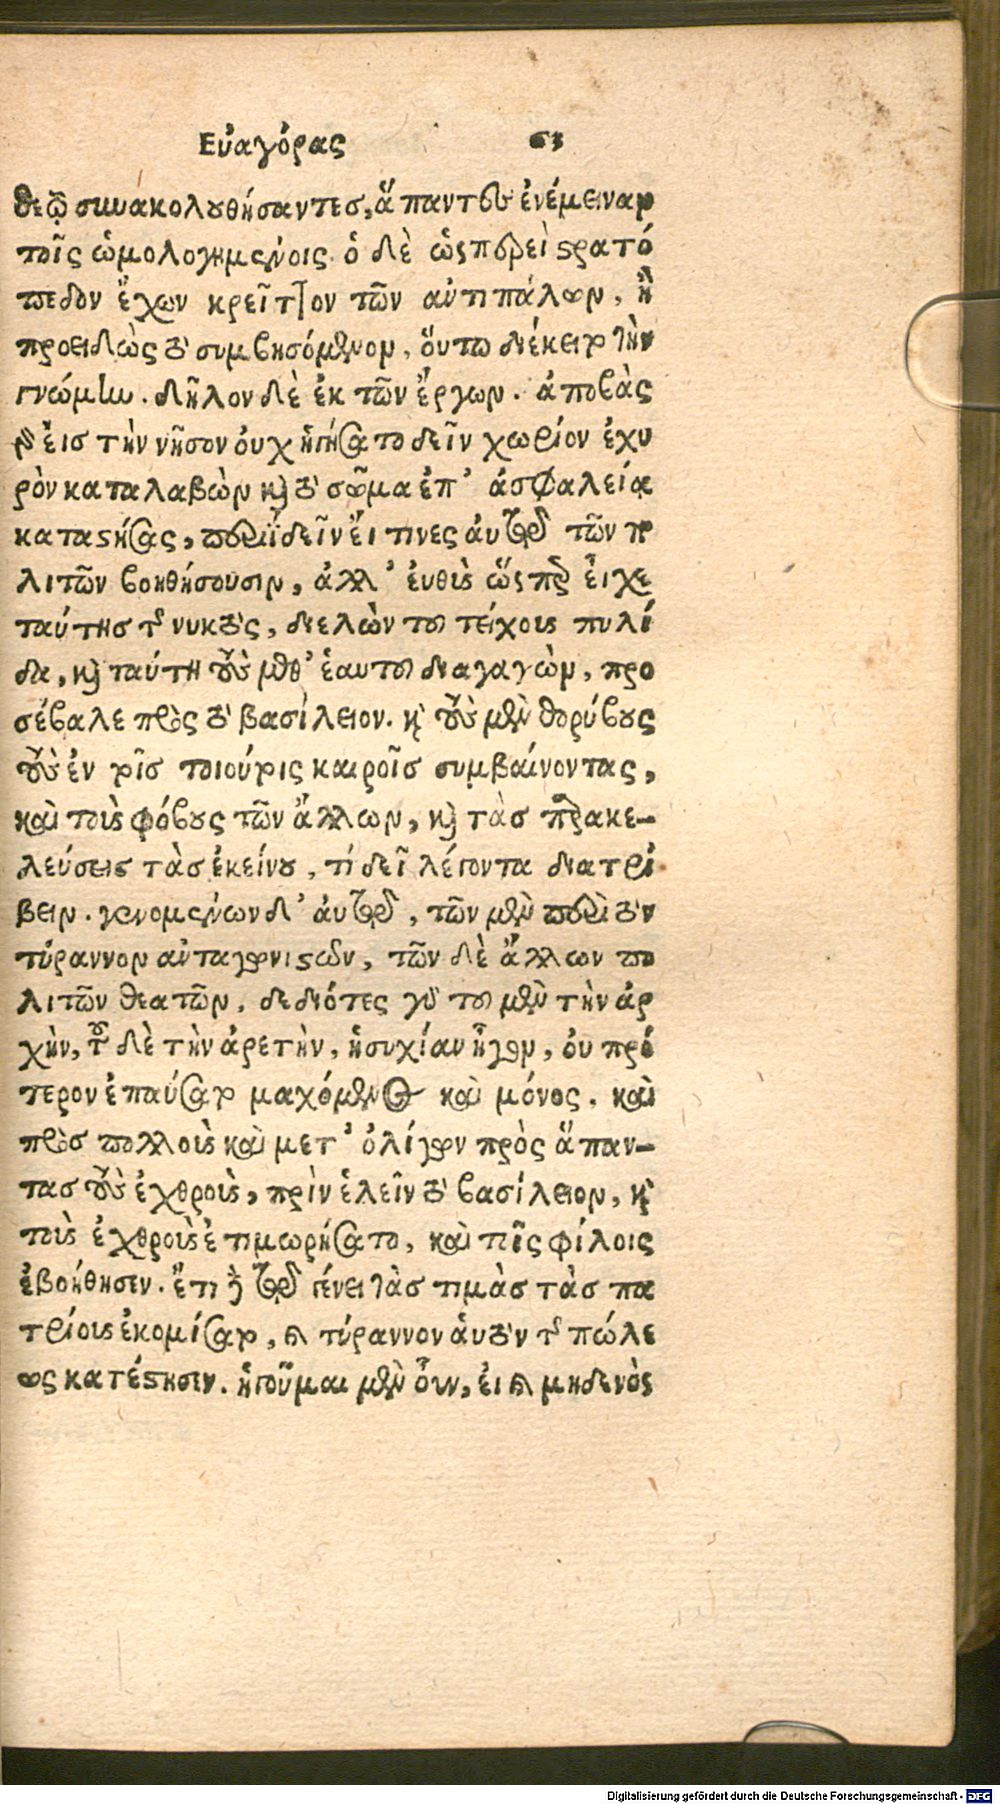 Εὐαγόρας 63
θεῷ συνακολουθήσαντες, ἅπαντες ἐνέμειναν
τοῖς ὡμολογημένοις. ὁ δὲ ὥσπερεὶ στρατό
πεδον ἔχων κρεῖττον τῶν ἀντιπάλων, ἢ
προειδὼς τὸ συμβησόμενον, οὕτω διέκειτο τὴν
γνώμην. δῆλον δὲ ἐκ τῶν ἔργων. ἀποβὰς
γὰρ εἰς τὴν νῆσον οὐχ ἡγήσατο δεῖν χωρίον ἐχυ
ρὸν καταλαβὼν καὶ τὸ σῶμα ἐπ' ἀσφαλείᾳ
καταστήσας, περιϊδεῖν εἴ τινες αὐτῷ τῶν πο
λιτῶν βοηθήσουσιν, ἀλλ' εὐθὺς ὥσπερ εἶχε
ταύτης τῆς νυκτὸς, διελὼν τοῦ τείχους πυλί
δα, καὶ ταύτῃ τοὺς μεθ' ἑαυτοῦ διαγαγὼν, προ
σέβαλε πρὸς τὸ βασίλειον. καὶ τοὺς μὲν θορύβους
τοὺς ἐν τοῖς τοιούτοις καιροῖς συμβαίνοντας,
καὶ τοὺς φόβους τῶν ἄλλων, καὶ τὰς παρακε-
λεύσεις τὰς ἐκείνου, τί δεῖ λέγοντα διατρί
βειν. γενομένων δ' αὐτῷ, τῶν μὲν περὶ τὸν
τύραννον ἀνταγωνιστῶν, τῶν δὲ ἄλλων πο
λιτῶν θεατῶν, δεδιότες γὰρ τοῦ μὲν τὴν ἀρ
χὴν, τοῦ δὲ τὴν ἀρετὴν, ἡσυχίαν ἦγον, οὐ πρό
τερον ἐπαύσατο μαχόμενος καὶ μόνος. καὶ
πρὸς πολλοὺς καὶ μετ' ὀλίγων πρὸς ἅπαν-
τας τοὺς ἐχθροὺς, πρὶν ἑλεῖν τὸ βασίλειον, καὶ
τοὺς ἐχθροὺς ἐτιμωρήσατο, καὶ τοῖς φίλοις
ἐβοήθησεν. ἔτι δὲ τῷ γένει τὰς τιμὰς τὰς πα
τρίους ἐκομίσατο, καὶ τύραννον αὑτὸν τῆς πόλε
ως κατέστησεν. ἡγοῦμαι μὲν οὖν, εἰ καὶ μηδενὸς
Digitalisierung gefördert durch die Deutsche Forschungsgemeinschaft - DFG